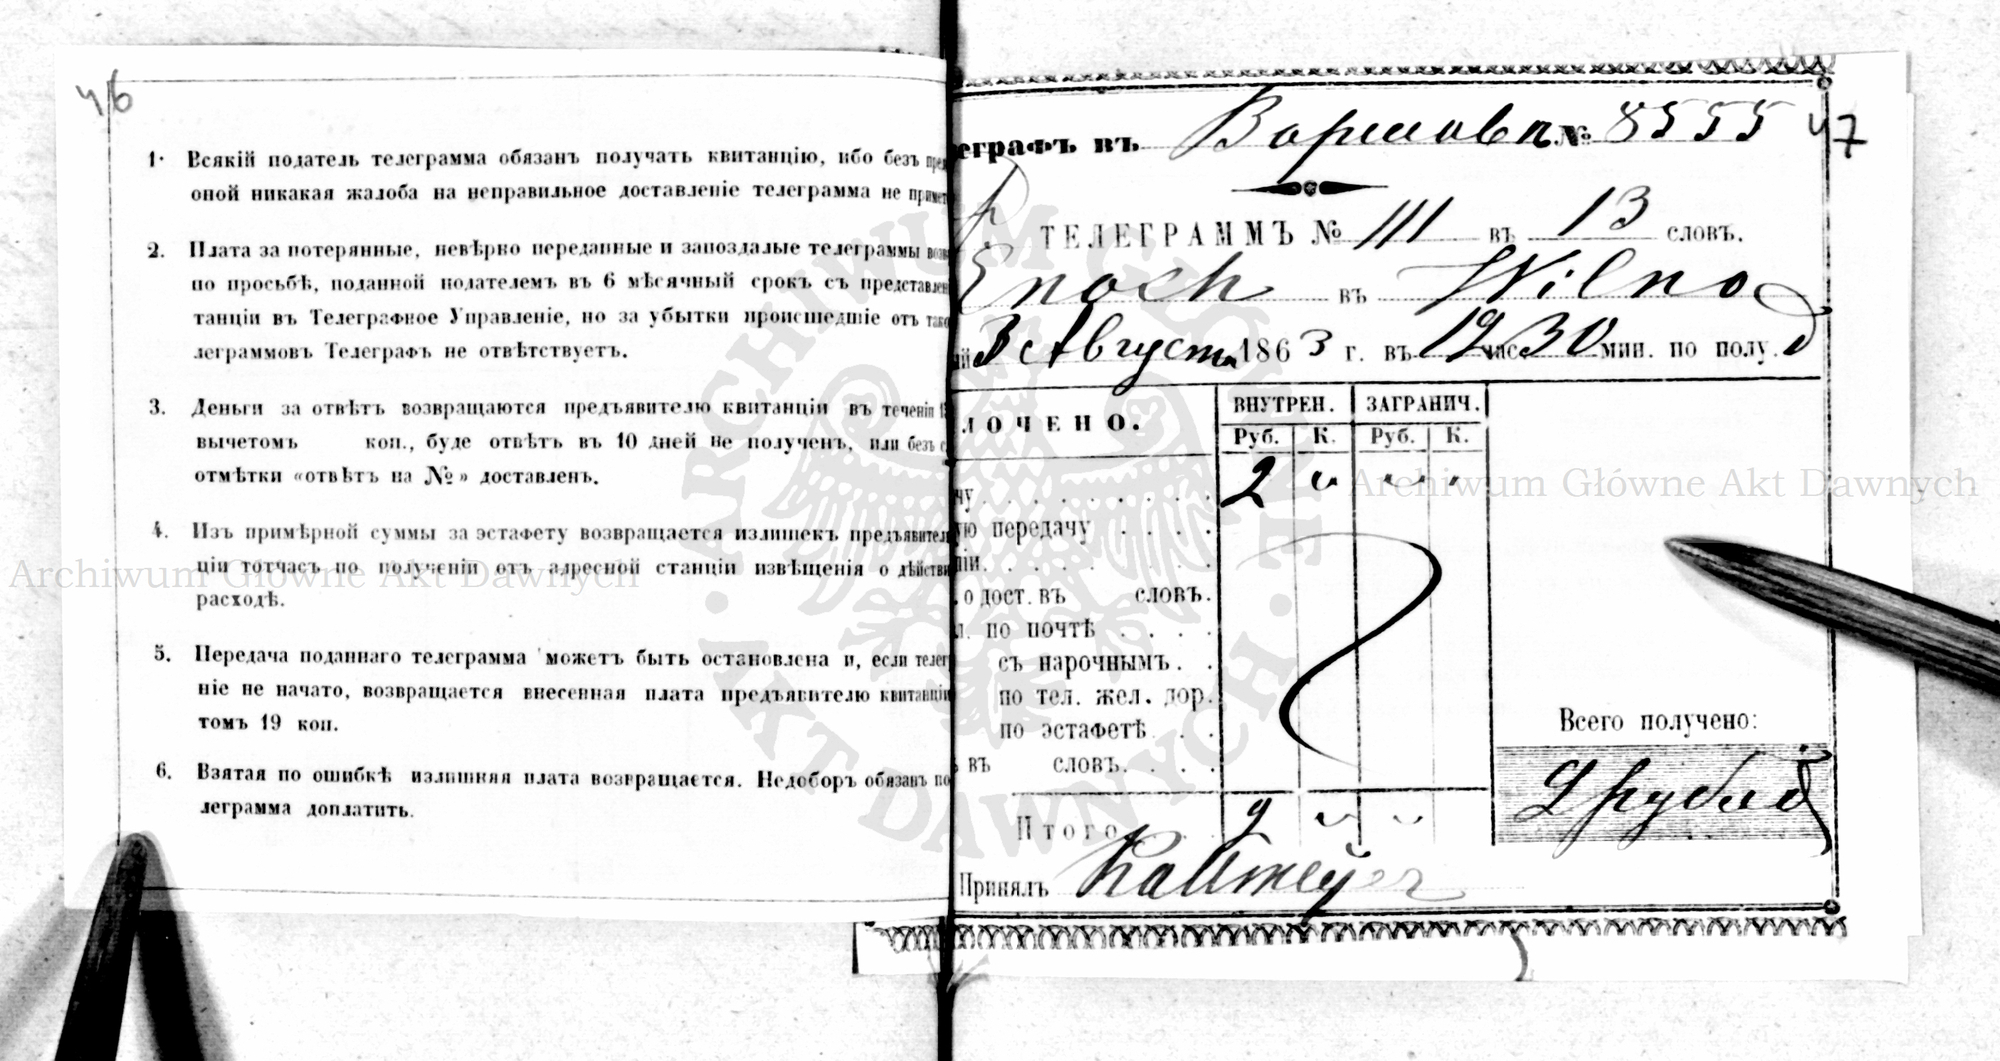 46
1. Всякій податель телеграмма обязанъ получать квитанцію, ибо безъ пред
оной никакая жалоба на неправильное доставленіе телеграмма не примет
2. Плата за потерянные, невѣрно переданные и запоздалые телеграммы возв
по просьбѣ, поданной подателемъ въ 6 мѣсячный срокъ съ представлен
танціи въ Телеграфное Управленіе, но за убытки происшедшіе отъ тако
леграммовъ Телеграфъ не отвѣтствуетъ.
3. Деньги за отвѣтъ возвращаются предъявителю квитанціи въ теченіи
вычетомъ коп., буде отвѣтъ въ 10 дней не полученъ, или безъ
отмѣтки «отвѣтъ на №» доставленъ.
4. Изъ примѣрной суммы за эстафету возвращается излишекъ предъявител
ціи тотчасъ по полученіи отъ адресной станціи извѣщенія о дѣйстви
расходѣ.
5. Передача поданнаго телеграмма можетъ быть остановлена и, если телег
ніе не начато, возвращается внесенная плата предъявителю квитанціи
томъ 19 коп.
6. Взятая по ошибкѣ излишняя плата возвращается. Недоборъ обязанъ по
леграмма доплатить.
еграфъ въ Варшавѣ № 8555 47
ТЕЛЕГРАММЪ № 111 въ 13 словъ.
Enoch въ Wilno
3 Августа 1863 г. въ 12 час 30 мин. по полу.
ЛОЧЕНО. ВНУТРЕН. ЗАГРАНИЧ.
Руб. К. Руб. К.
чу 2 " " "
ую передачу
ніи
о дост. въ словъ.
по почтѣ
съ нарочнымъ.
по тел. жел. дор.
по эстафетѣ
въ словъ.
Всего получено:
2 рубля
Итого 2 " "
Принялъ Kallmeyer
ARCHIWUM GŁÓWNE AKT DAWNYCH
Archiwum Główne Akt Dawnych
Archiwum Główne Akt Dawnych